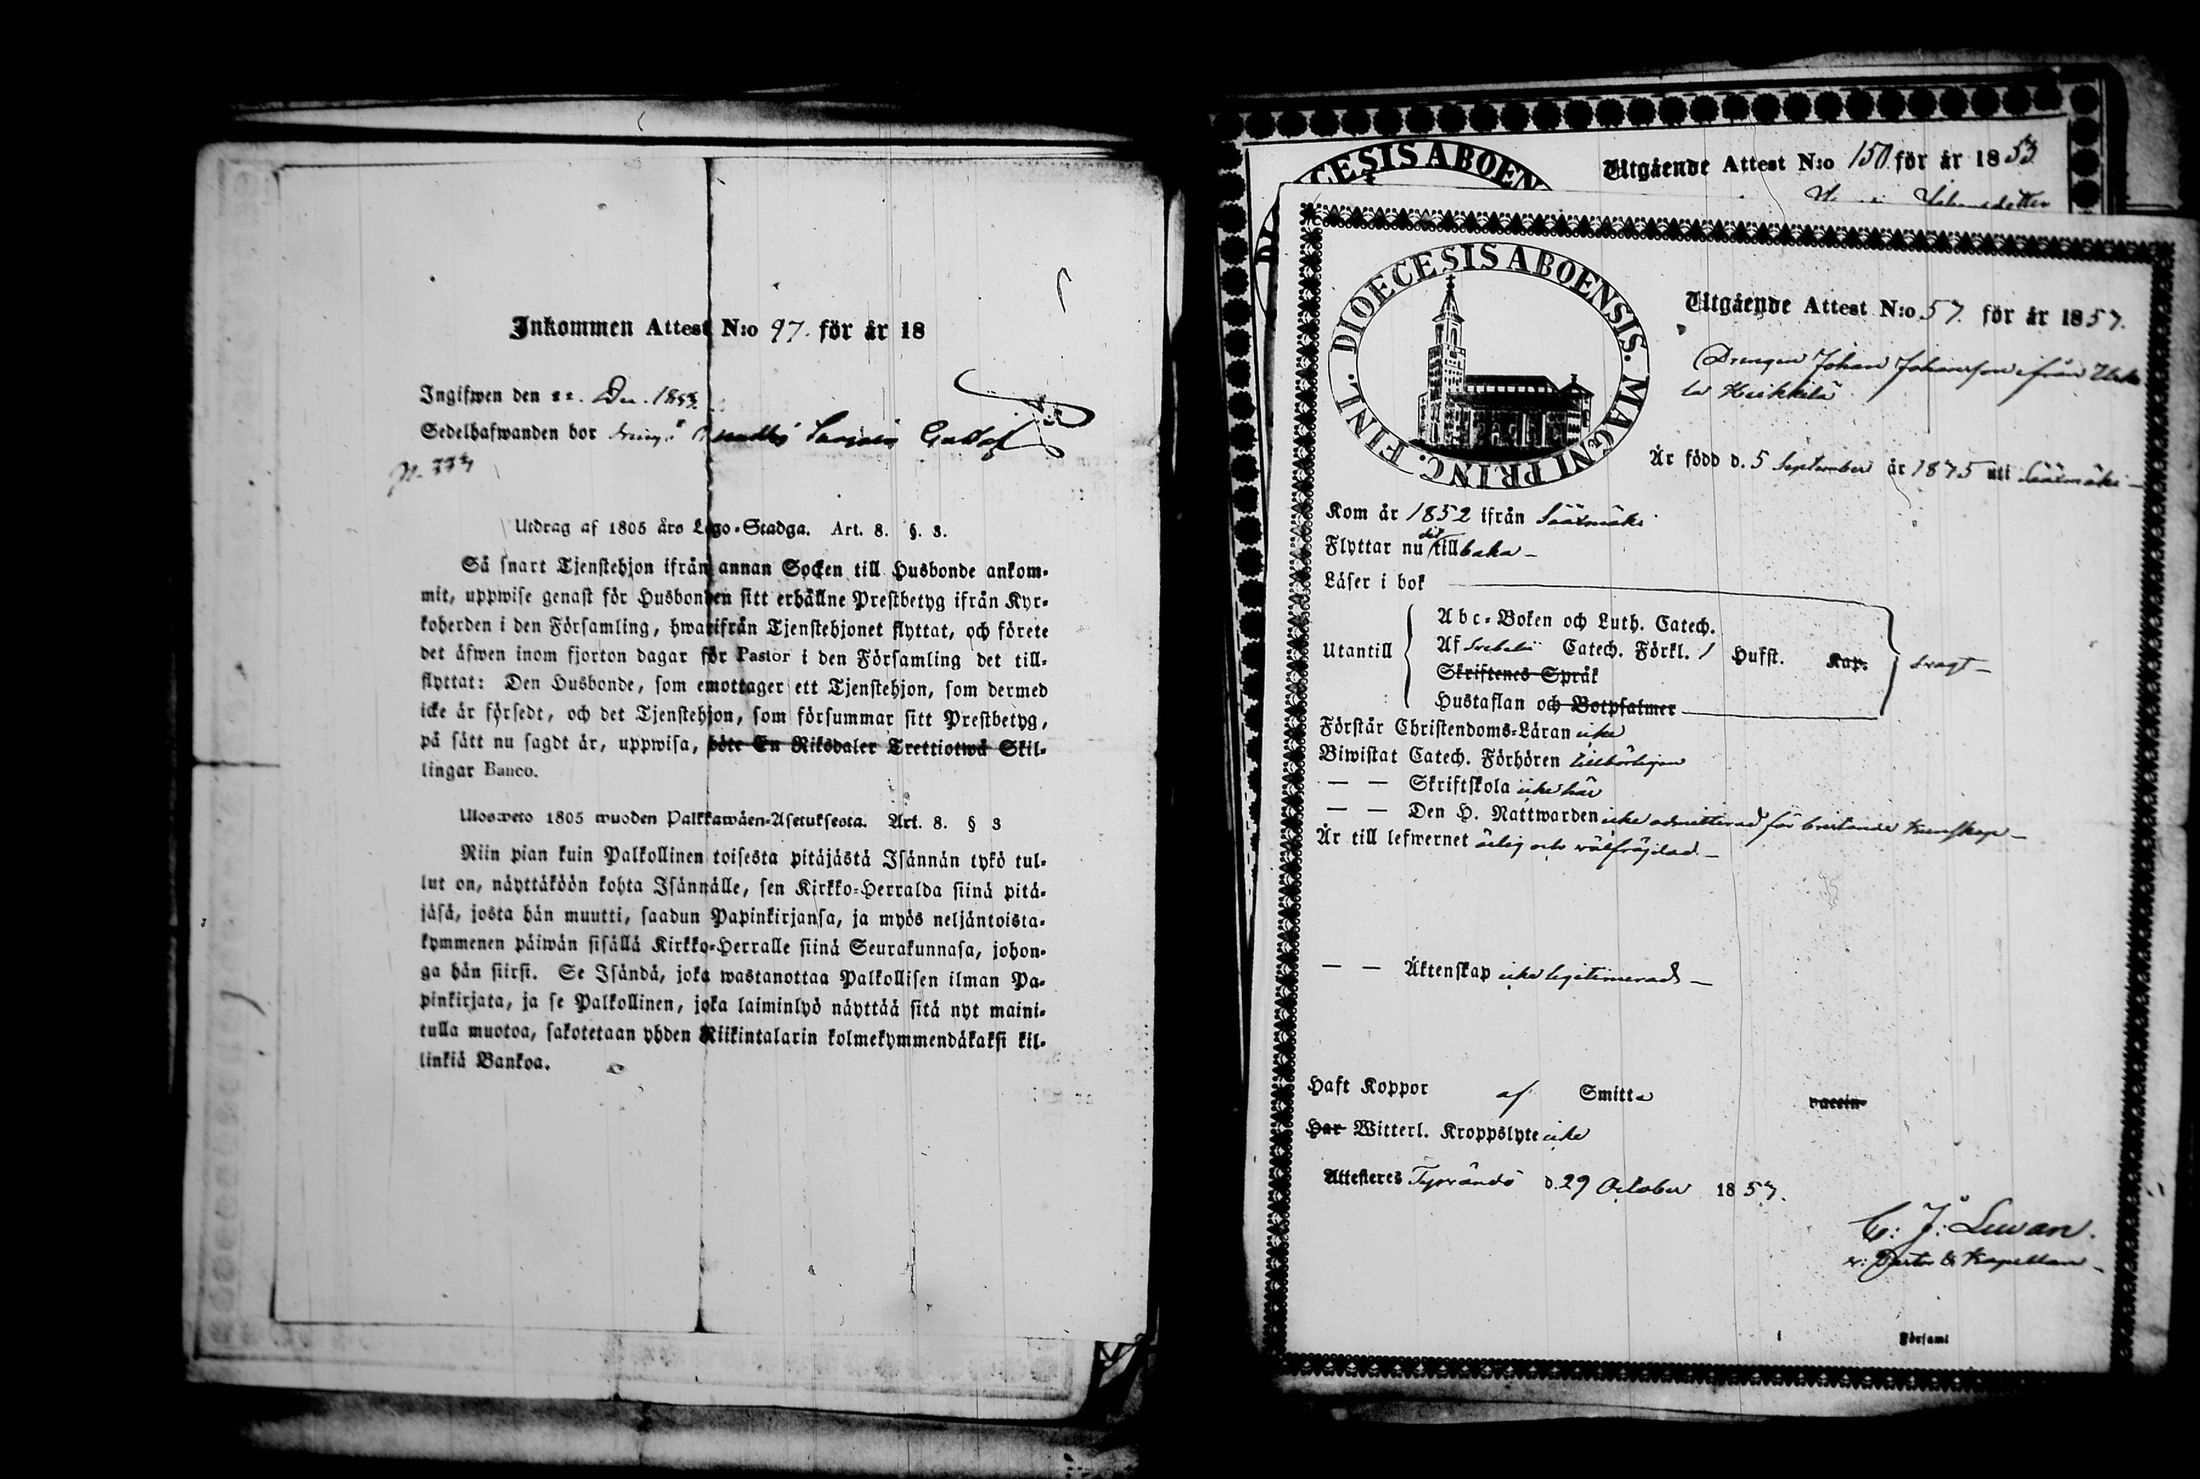 Inkommen Attest N:o 97. för år 18
Ingifwen den 22. Dec. 1853.
Sedelhafwanden bor
Utdrag af 1805 års Lego-Stadga. Art. 8. §. 3.
Så snart Tjenstehjon ifrån annan Socken till Husbonde ankom-
mit, uppwise genast för Husbonden sitt erhållne Prestbetyg ifrån Kyr-
koherden i den Församling, hwarifrån Tjenstehjonet flyttat, och förete
det äfwen inom fjorton dagar för Pastor i den Församling det till-
flyttat: Den Husbonde, som emottager ett Tjenstehjon, som dermed
icke är försedt, och det Tjenstehjon, som försummar sitt Prestbetyg,
på sätt nu sagdt är, uppwisa, böte En Riksdaler Trettiotwå Skil-
lingar Banco.
Ulosweto 1805 wuoden Palkkawäen-Asetuksesta. Art. 8. § 3
Niin pian kuin Palkollinen toisesta pitäjästä Isännän tykö tul-
lut on, näyttäköön kohta Isännälle, sen Kirkko-Herralda siinä pitä-
jäsä, josta hän muutti, saadun Papinkirjansa, ja myös neljäntoista-
kymmenen päiwän sisällä Kirkko-Herralle siinä Seurakunnasa, johon-
ga hän siirst. Se Isändä, joka wastanottaa Palkollisen ilman Pa-
pinkirjata, ja se Palkollinen, joka laiminlyö näyttää sitä nyt maini-
tulla muotoa, sakotetaan yhden Riikintalarin kolmekymmendäkaksi kil-
linkiä Bankoa.
DIOECESIS ABOEN
Utgående Attest N:o 150 för år 1853
Johansdotter
DIOECESIS ABOENSIS. MAGNI PRINC. FINL.
Utgående Attest N:o 57. för år 1857.
Drengen Johan Johansson ifrån
la Heikkilä
Är född d. 5 September år 1875 uti Sääxmäki
Kom år 1852 ifrån Sääxmäki
Flyttar nu dit tillbaka
Läser i bok
Utantill
Abc-Boken och Luth. Catech.
Af Svebelii Catech. Förkl. / Husst. Kap.
Skriftenes Språk
Hustaflan och Botpsalmer
svagt
Förstår Christendoms-Läran icke
Biwistat Catech. Förhören tillbörligen
— — Skriftskola icke här
— — Den H. Nattwarden icke admitterad för bristande kunskap
Är till lefwernet ärlig och välfräjdad
— — Äktenskap icke legitimerad
Haft Koppor af Smitta vaccin
Har Witterl. Kroppslyte icke
Attesteres Tyrvändö d. 29 October 1857.
C: J: Lewan.
v: Pastor & Kapellan
Församl